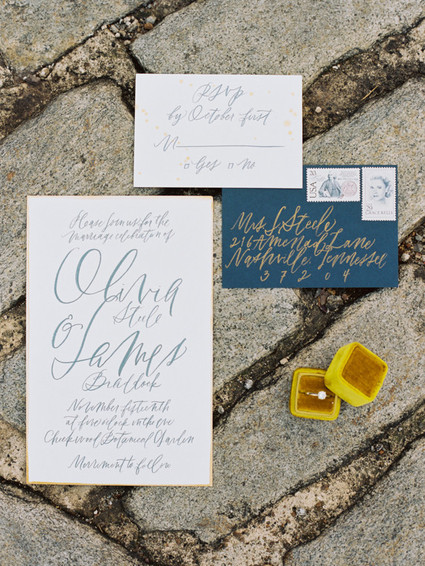 RSVP
by October first
M
Yes no
USA
GRACE KELLY
Mrs. J. Steele
Lane
Nashville, Tennessee
37204
Please join us for the
marriage celebration of
Olivia
Steele
&
James
Braddock
November fifteenth
at five o'clock in the eve
Cheekwood Botanical Garden
Merriment to follow